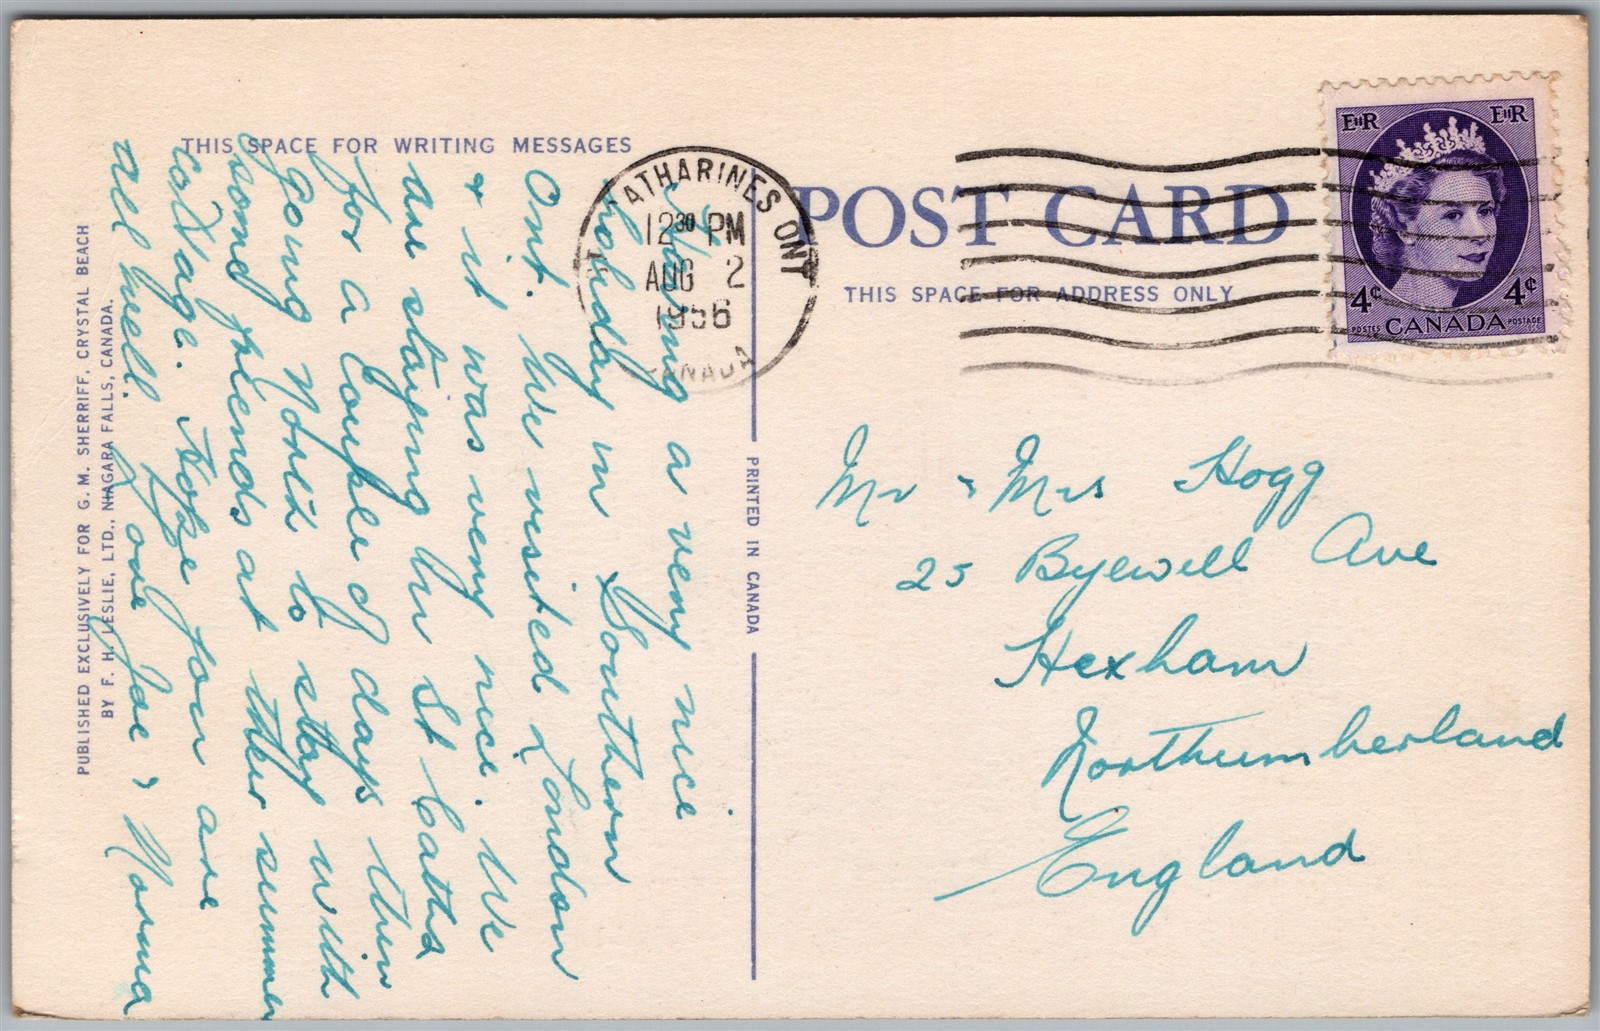 THIS SPACE FOR WRITING MESSAGES
Having a very nice
holiday in Southern
Ont. We visited London
& it was very nice. We
are staying in St Caths
for a couple of days then
going North to stay with
some friends at their summer
cottage. Hope you are
all well. Love Joe & Norma
PUBLISHED EXCLUSIVELY FOR G. M. SHERRIFF, CRYSTAL BEACH
BY F. H. LESLIE, LTD., NIAGARA FALLS, CANADA.
PRINTED IN CANADA
ST CATHARINES ONT
12 30 PM
AUG 2
1956
CANADA
POST CARD
THIS SPACE FOR ADDRESS ONLY
EIIR EIIR
4¢ 4¢
POSTES CANADA POSTAGE
Mr & Mrs Hogg
25 Byewell Ave
Hexham
Northumberland
England